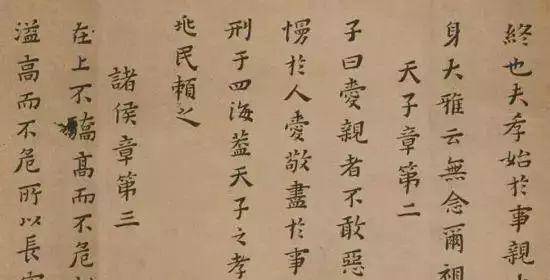 終也夫孝始於事親
身大雅云無念爾祖
天子章第二
子曰愛親者不敢惡
慢於人愛敬盡於事
刑于四海葢天子之孝
兆民賴之
諸侯章第三
在上不驕高而不危
溢高而不危所以長